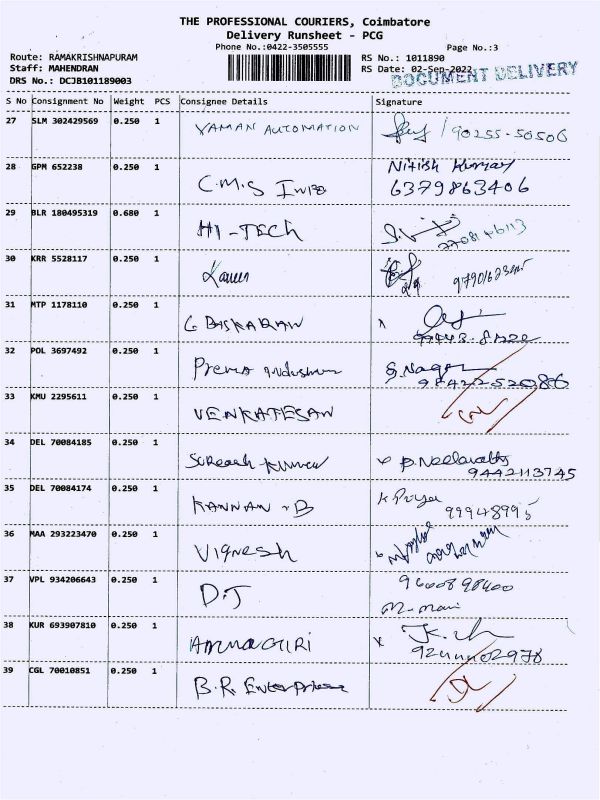 THE PROFESSIONAL COURIERS, Coimbatore
Delivery Runsheet - PCG
Phone No.:0422-3505555 Page No.:3
Route: RAMAKRISHNAPURAM RS No.: 1011890
Staff: MAHENDRAN RS Date: 02-Sep-2022
DRS No.: DCJB101189003 DOCUMENT DELIVERY
S No Consignment No Weight PCS Consignee Details Signature
27 SLM 302429569 0.250 1 YAMAN AUTOMATION / 90255-50506
28 GPM 652238 0.250 1 C.M.S Nitish Kumar
6379863406
29 BLR 180495319 0.680 1 HI-TECH
30 KRR 5528117 0.250 1
31 MTP 1178110 0.250 1 G BASKARAN
32 POL 3697492 0.250 1 Prema S. Nagar
9842252086
33 KMU 2295611 0.250 1 VENKATESAN
34 DEL 70084185 0.250 1 Suresh Kumar
9442113745
35 DEL 70084174 0.250 1 KANNAN B K Priya
36 MAA 293223470 0.250 1 Vignesh
37 VPL 934206643 0.250 1 D.J
M-mani
38 KUR 693907810 0.250 1
39 CGL 70010851 0.250 1 B.R. Enterprises